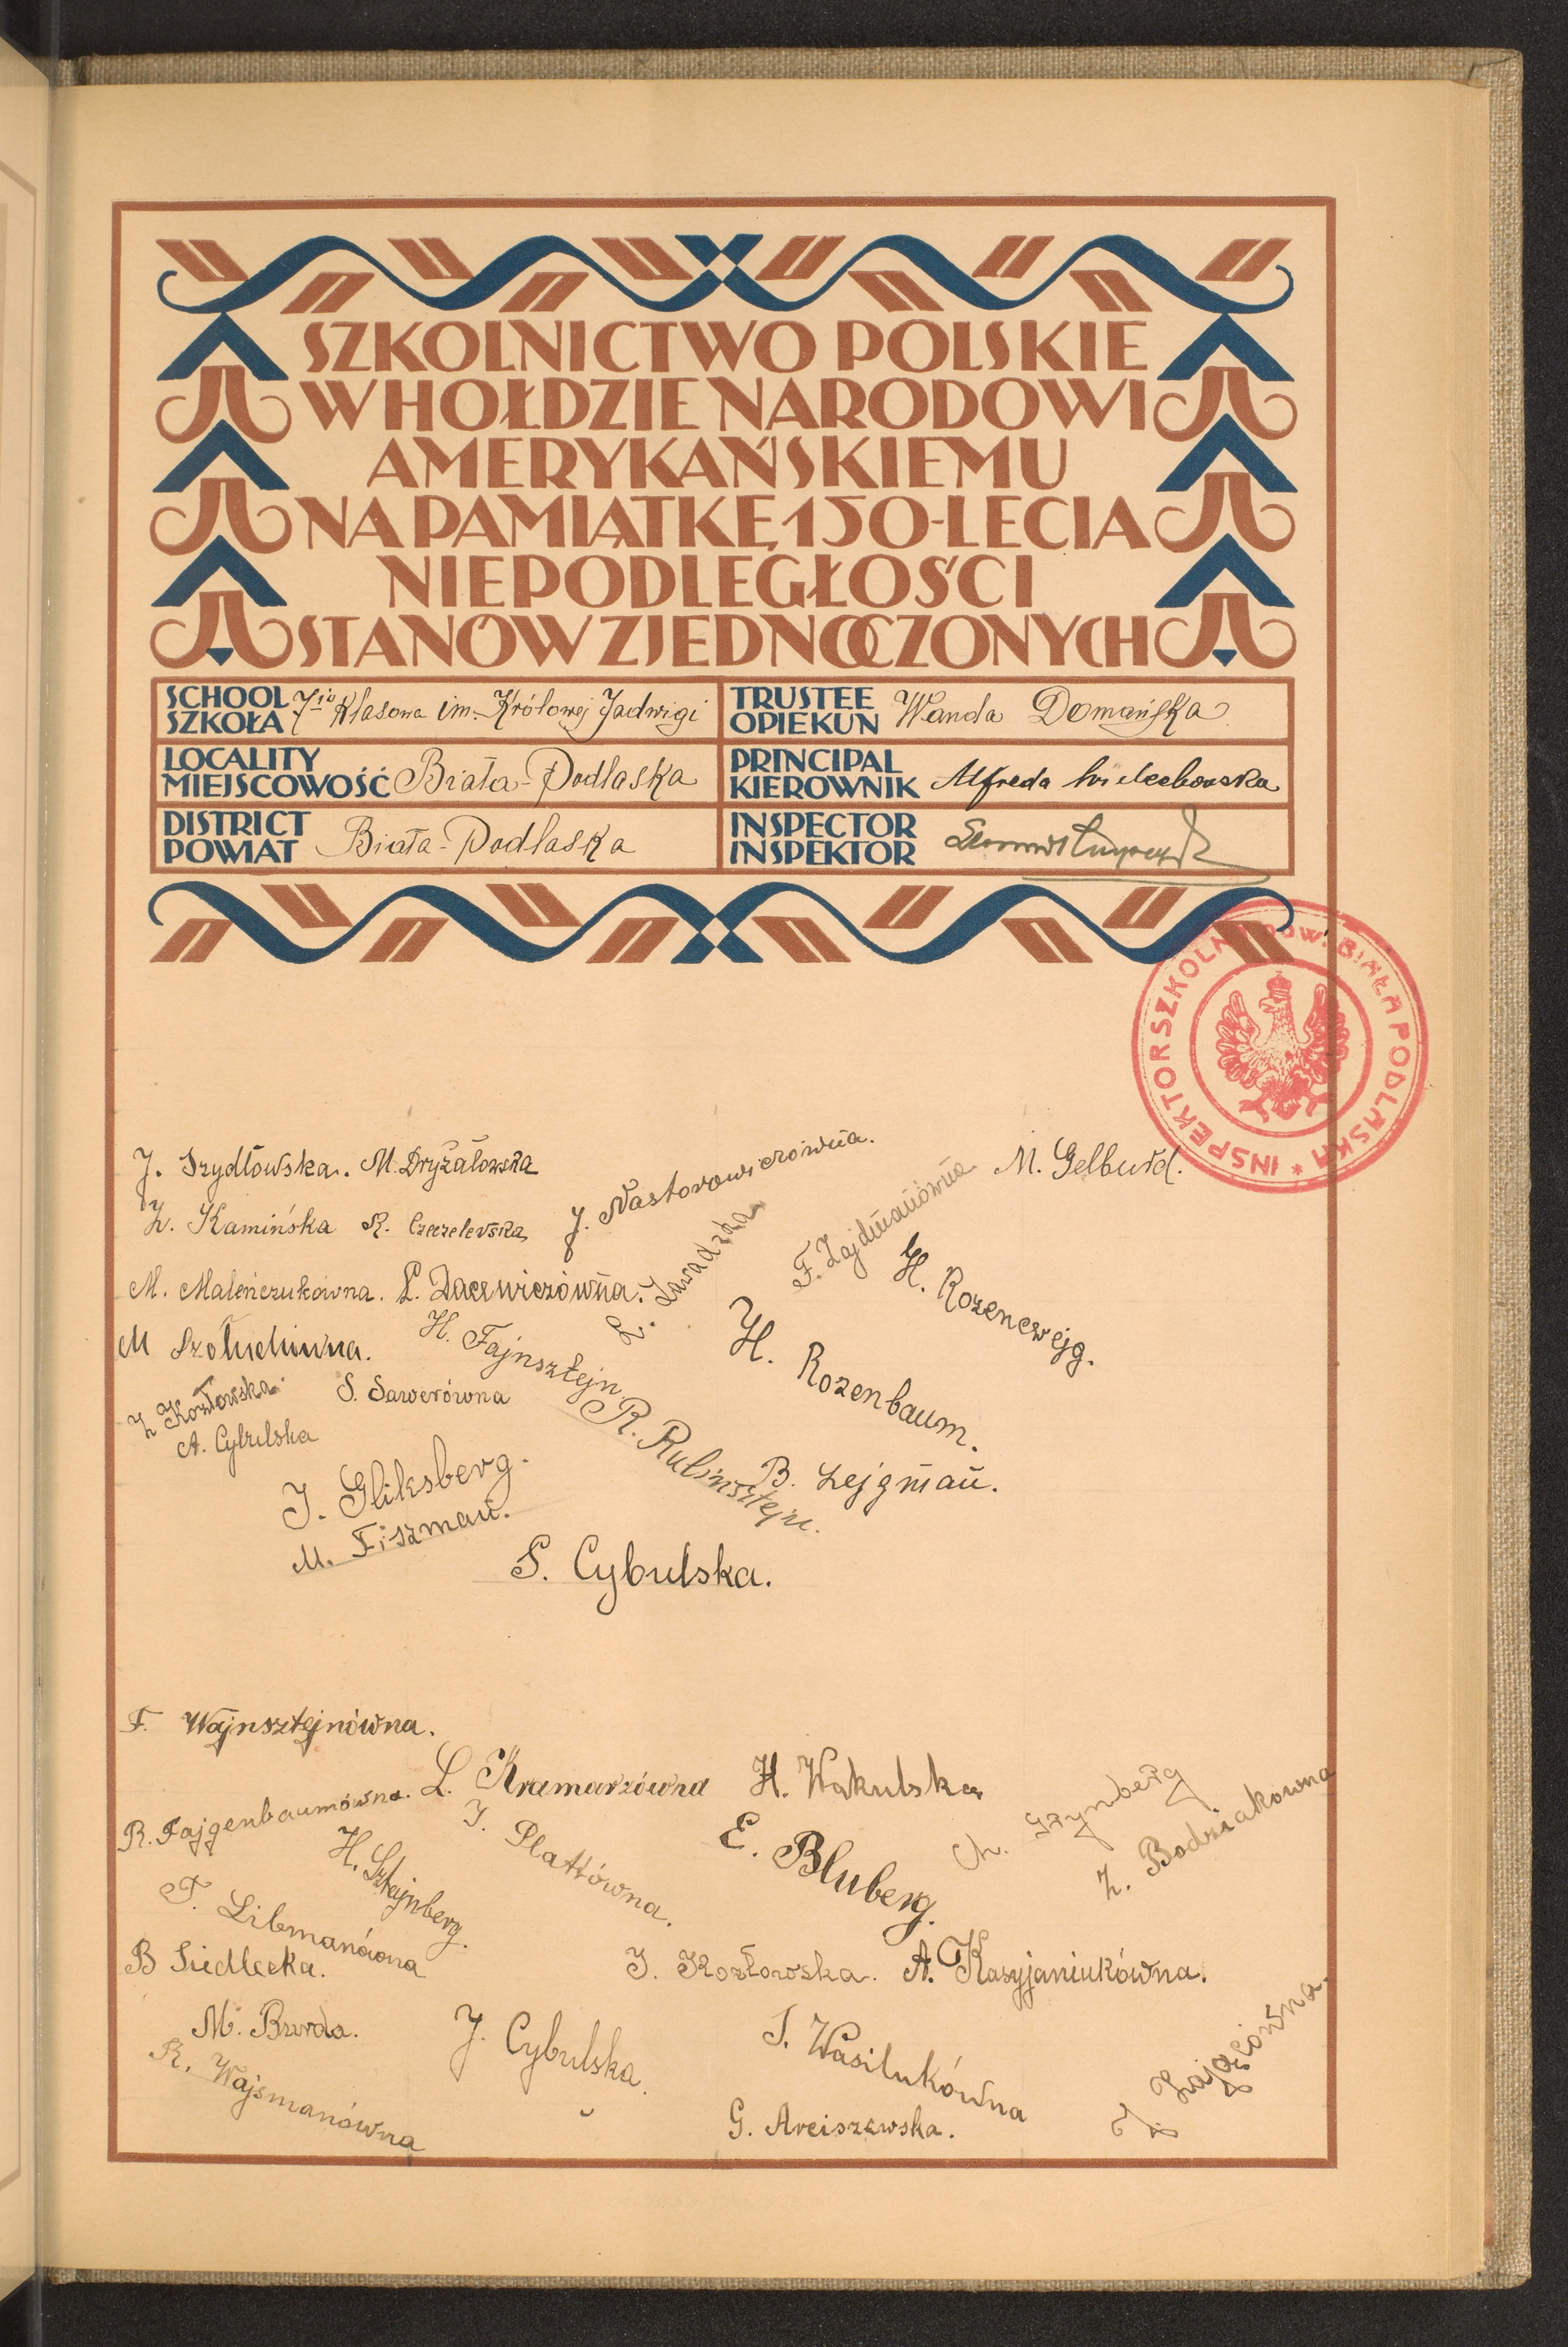 SZKOLNICTWO POLSKIE
W HOŁDZIE NARODOWI
AMERYKAŃSKIEMU
NA PAMIĄTKĘ 150-LECIA
NIEPODLEGŁOŚCI
STANÓW ZJEDNOCZONYCH
SCHOOL
SZKOŁA
7-io klasowa im. Królowej Jadwigi
TRUSTEE
OPIEKUN
Wanda Domańska
LOCALITY
MIEJSCOWOŚĆ
Biała-Podlaska
PRINCIPAL
KIEROWNIK
Alfreda
DISTRICT
POWIAT
Biała-Podlaska
INSPECTOR
INSPEKTOR
INSPEKTOR SZKOLNY POW. BIAŁA PODLASKA *
J. Szydłowska.
M. Dryżałowska
J. Nastorowiczówna.
M. Gelburd.
Z. Kamińska
R.
Z. Zawadzka
F. Zajdmanówna
H. Rozencwejg.
M. Maleńczukówna.
L. Dacewiczówna.
H. Rozenbaum.
M
H. Fajnsztejn.
Z Kozłowska
S. Sawerówna
R. Rubinsztejn.
A. Cybulska
B. Lejgman.
J. Gliksberg.
M. Fiszman.
S. Cybulska.
F. Wajnsztejnówna.
R. Fajgenbaumówna.
L. Kramarzówna
H. Wakulska
Ch. Grynberg
Z. Bodziakówna
H. Sztajnberg.
J. Plattówna.
E. Bluberg.
F. Libmanówna
B Siedlecka.
J. Kozłowska.
A. Kasyjaniukówna.
M. Burda.
J. Cybulska.
J. Wasilukówna
J. Zajęcówna.
R. Wajsmanówna
G. Arciszewska.